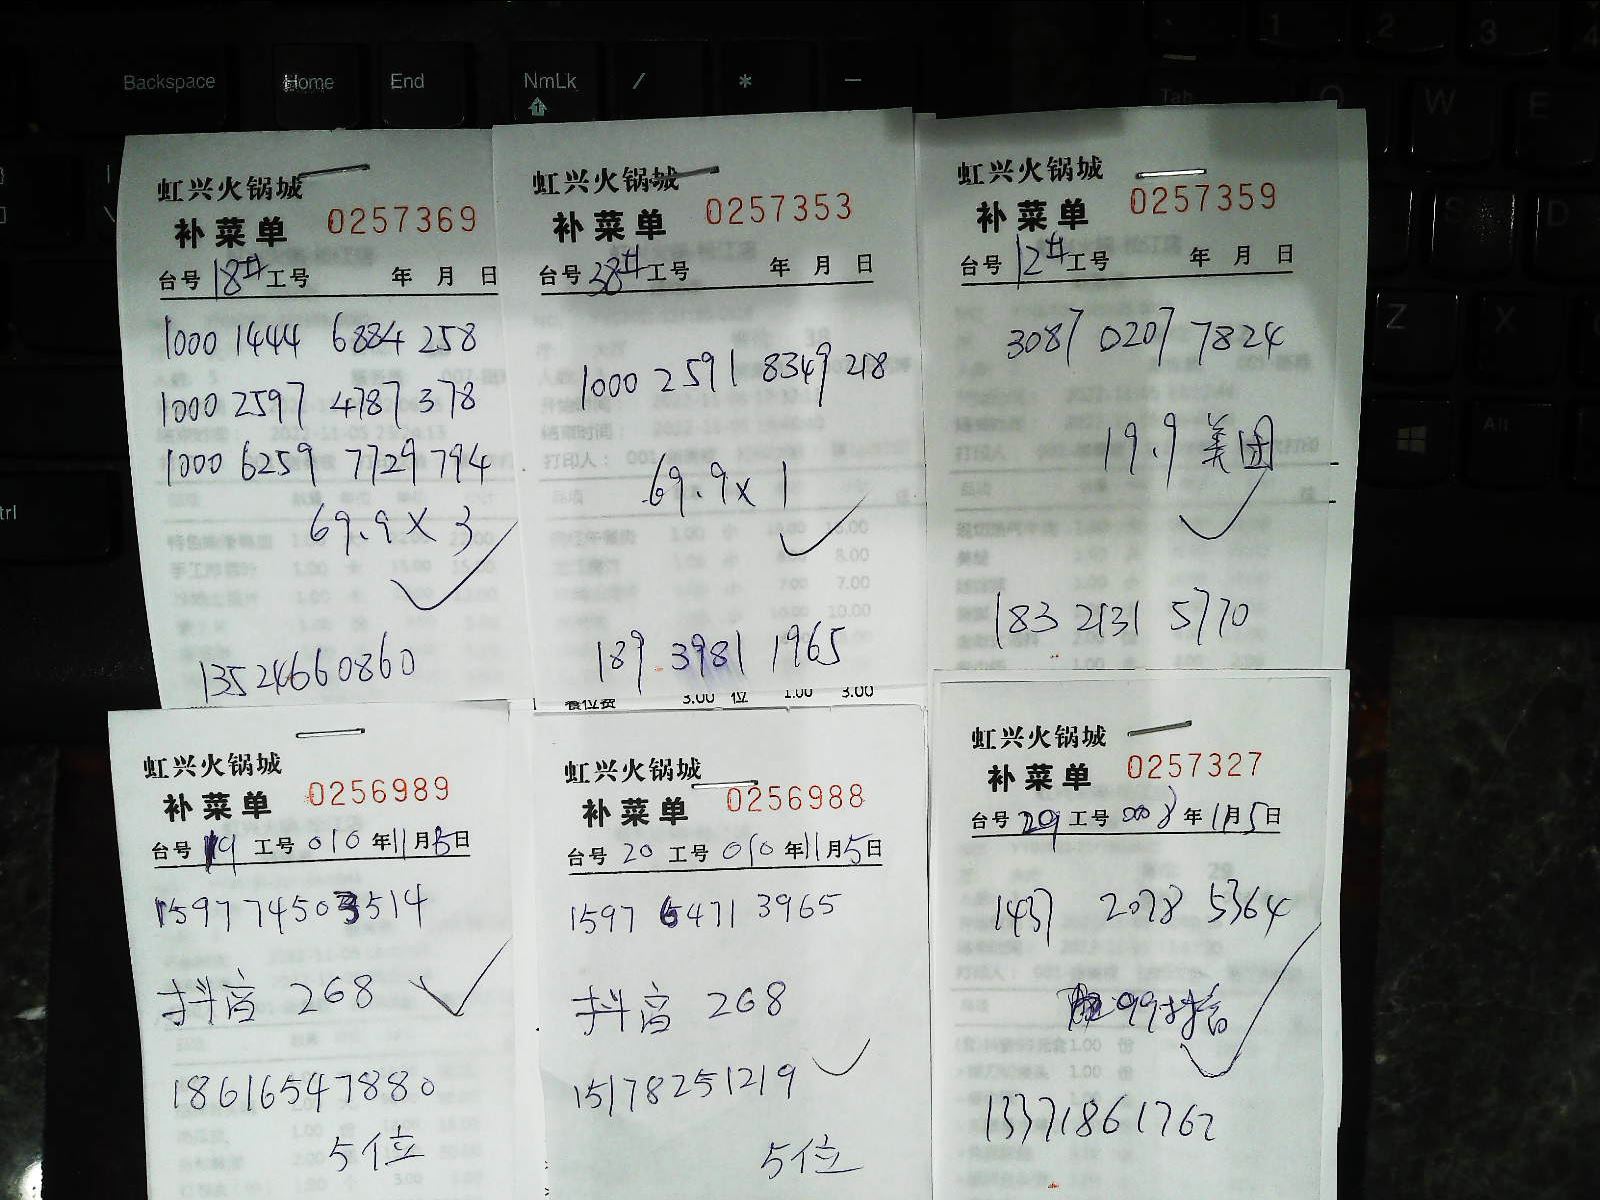 Backspace
Home
End
NmLk
/
*
—
1
2
3
4
Tab
Q
W
E
S
D
Z
X
Alt
trl
虹兴火锅城
补菜单 0257369
台号 18# 工号 年 月 日
1000 1444 6884 258
1000 2597 4787 378
1000 6259 7729 794
69.9 × 3
13524660860
虹兴火锅城
补菜单 0257353
台号 38# 工号 年 月 日
1000 2591 8349 218
69.9 × 1
189 3981 1965
餐位费 3.00 位 1.00 3.00
虹兴火锅城
补菜单 0257359
台号 12# 工号 年 月 日
3087 0207 7824
19.9 美团
183 2131 5770
虹兴火锅城
补菜单 0256989
台号 19 工号 010 年 11 月 5 日
1597 7450 3514
抖音 268
18616547880
5位
虹兴火锅城
补菜单 0256988
台号 20 工号 010 年 11 月 5 日
1597 6471 3965
抖音 268
15178251219
5位
虹兴火锅城
补菜单 0257327
台号 29 工号 008 年 11 月 5 日
1437 2078 5364
99抖音
13371861762